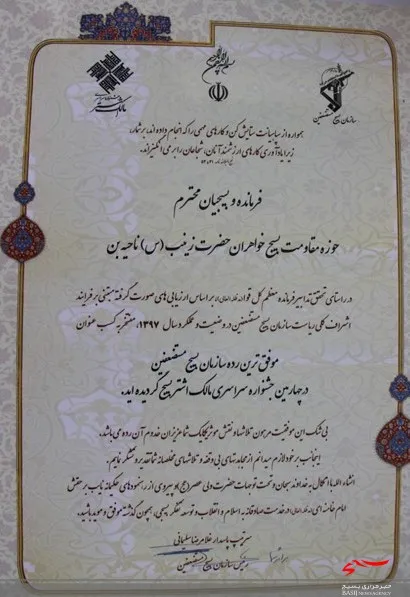 مالک اشتر
سازمان بسیج مستضعفین
همواره از سپاهیانت ستایش کن و کارهای مهمی را که انجام داده اند بر شمار،
زیرا یادآوری کارهای ارزشمند آنان، شجاعان را بر می انگیزاند.
فرمانده و بسیجیان محترم
حوزه مقاومت بسیج خواهران حضرت زینب (س) ناحیه بن
در راستای تحقق تدابیر فرمانده معظم کل قوا براساس ارزیابی های صورت گرفته مبتنی بر فرایند
اشراف کلی ریاست سازمان بسیج مستضعفین در وضعیت و عملکرد سال ۱۳۹۷، مفتخر به کسب عنوان
موفق ترین رده سازمان بسیج مستضعفین
در چهارمین جشنواره سراسری مالک اشتر بسیج گردیده اید.
بی شک این موفقیت مرهون تلاشها و نقش موثر یکایک شما عزیزان خدوم آن رده می باشد.
اینجانب بر خود لازم میدانم از مجاهدتهای بی وقفه و تلاشهای مخلصانه شما تقدیر و تشکر نمایم.
انشاءالله با اتکال به خداوند سبحان و تحت توجهات حضرت ولی عصر (عج) و پیروی از رهنمودهای حکیمانه نایب بر حقش
امام خامنه ای در خدمت صادقانه به اسلام و انقلاب و توسعه تفکر بسیجی، همچون گذشته موفق و موید باشید.
سرتیپ پاسدار غلامرضا سلیمانی
رئیس سازمان بسیج مستضعفین
خبرگزاری بسیج
BASIJ NEWS AGENCY